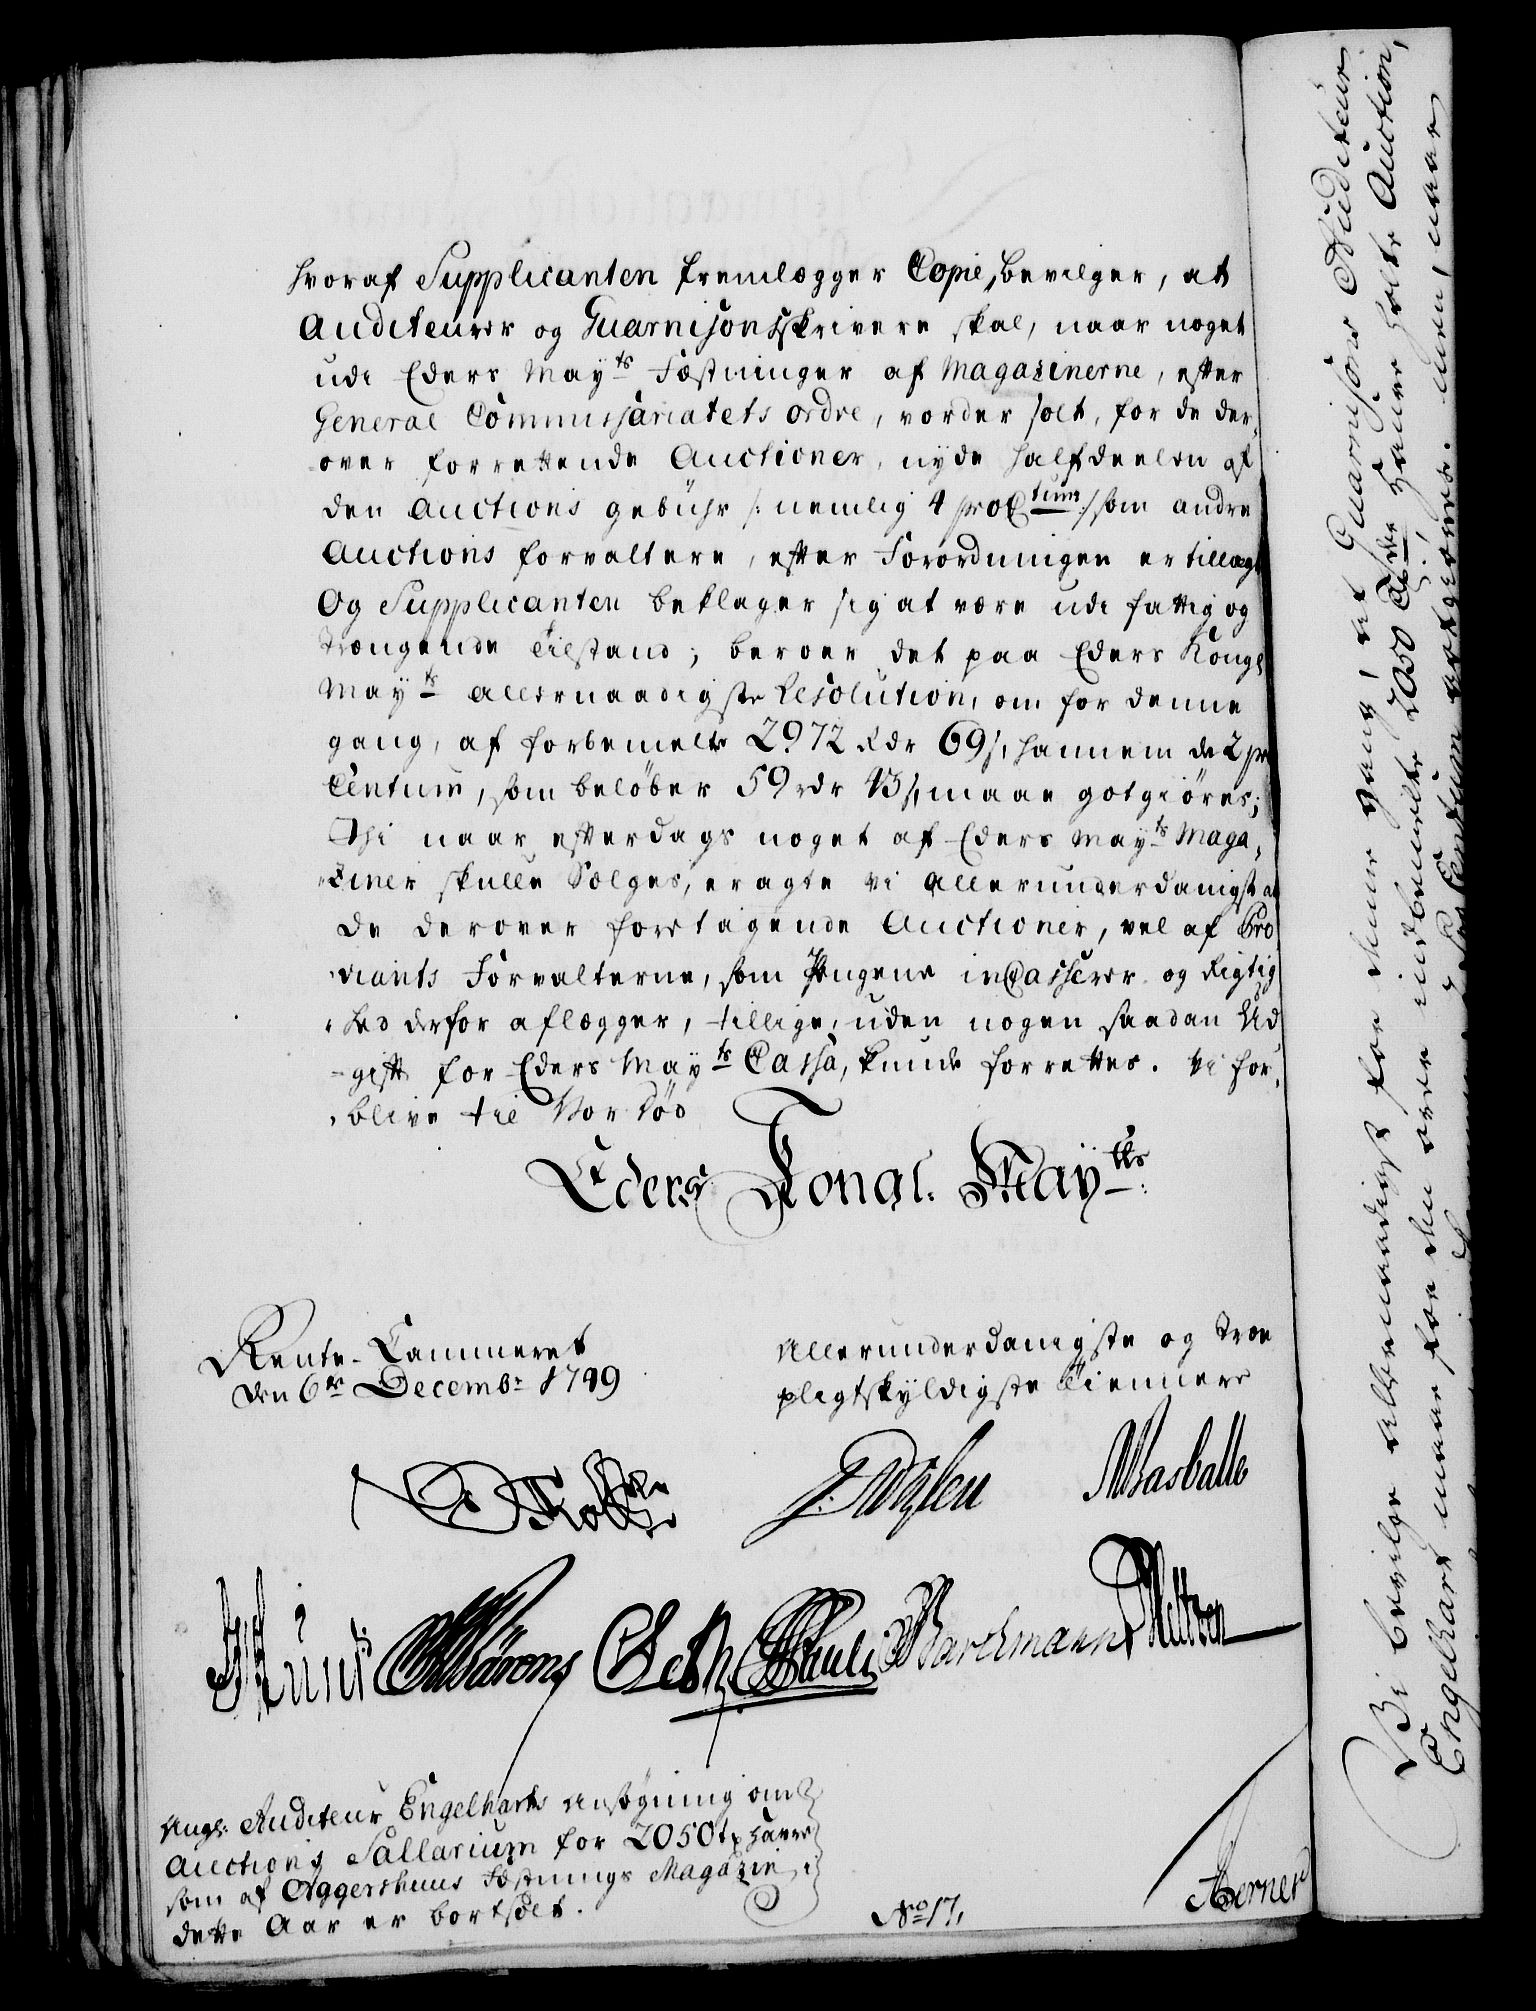 hvoraf Supplicanten fremlægger Copie, bevilger, at
Auditeurer og Guarnisonsskrivere skal, naar noget
udi Eders May.ts Fæstninger af Magazinerne, efter
General Commissariatets ordre, vorder solt, for de der,
over forrettende Auctioner, nyde halfdeelen af
den Auctions gebühr /: nemlig 4 pro Ctum :/ som andre
Auctions forvaltere, efter Forordningen er tillagt
Og Supplicanten beklager sig at være udi fattig og
trængende Tilstand; beroer det paa Eders Kongl
May.ts allernaadigste Resolution, om for denne
gang, af forbemelte 2972 Rdr 69 s, hannem de 2 pr
Centum, som beløber 59 rdr 43 s, maae gotgiøres;
Thi naar efterdags noget af Eders May.ts Maga,
ziner skulle Sælges, eragte vi allerunderdanigst at
de derover foretagende Auctioner, vel af Pro
viants Forvalterne, som Pengene incasserer og Rigtig
hed derfor aflægger, tillige, uden nogen saadan Ud
gift for Eders May.ts Cassa, kunde forrettes. Vi for,
blive til Vor Død
Eders Kongl. May.tts
Rente-Cammeret
den 6te Decembr 1749
Allerunderdanigste og troe
pligtskyldigste Tiennere
Barchmann
Berner
Angl: Auditeur Engelharts Ansøgning om
Auctions Sallarium for 2050 tr Haver
som af Aggershuus Fæstnings Magazin, i
dette Aar er bortsolt.
No 17,
Vi bevilge allernaadigst for denne gang, at Guarnisons Auditeur
Engelhart maae for den over indbemelte 2050 Tdr Haver holte Auction,